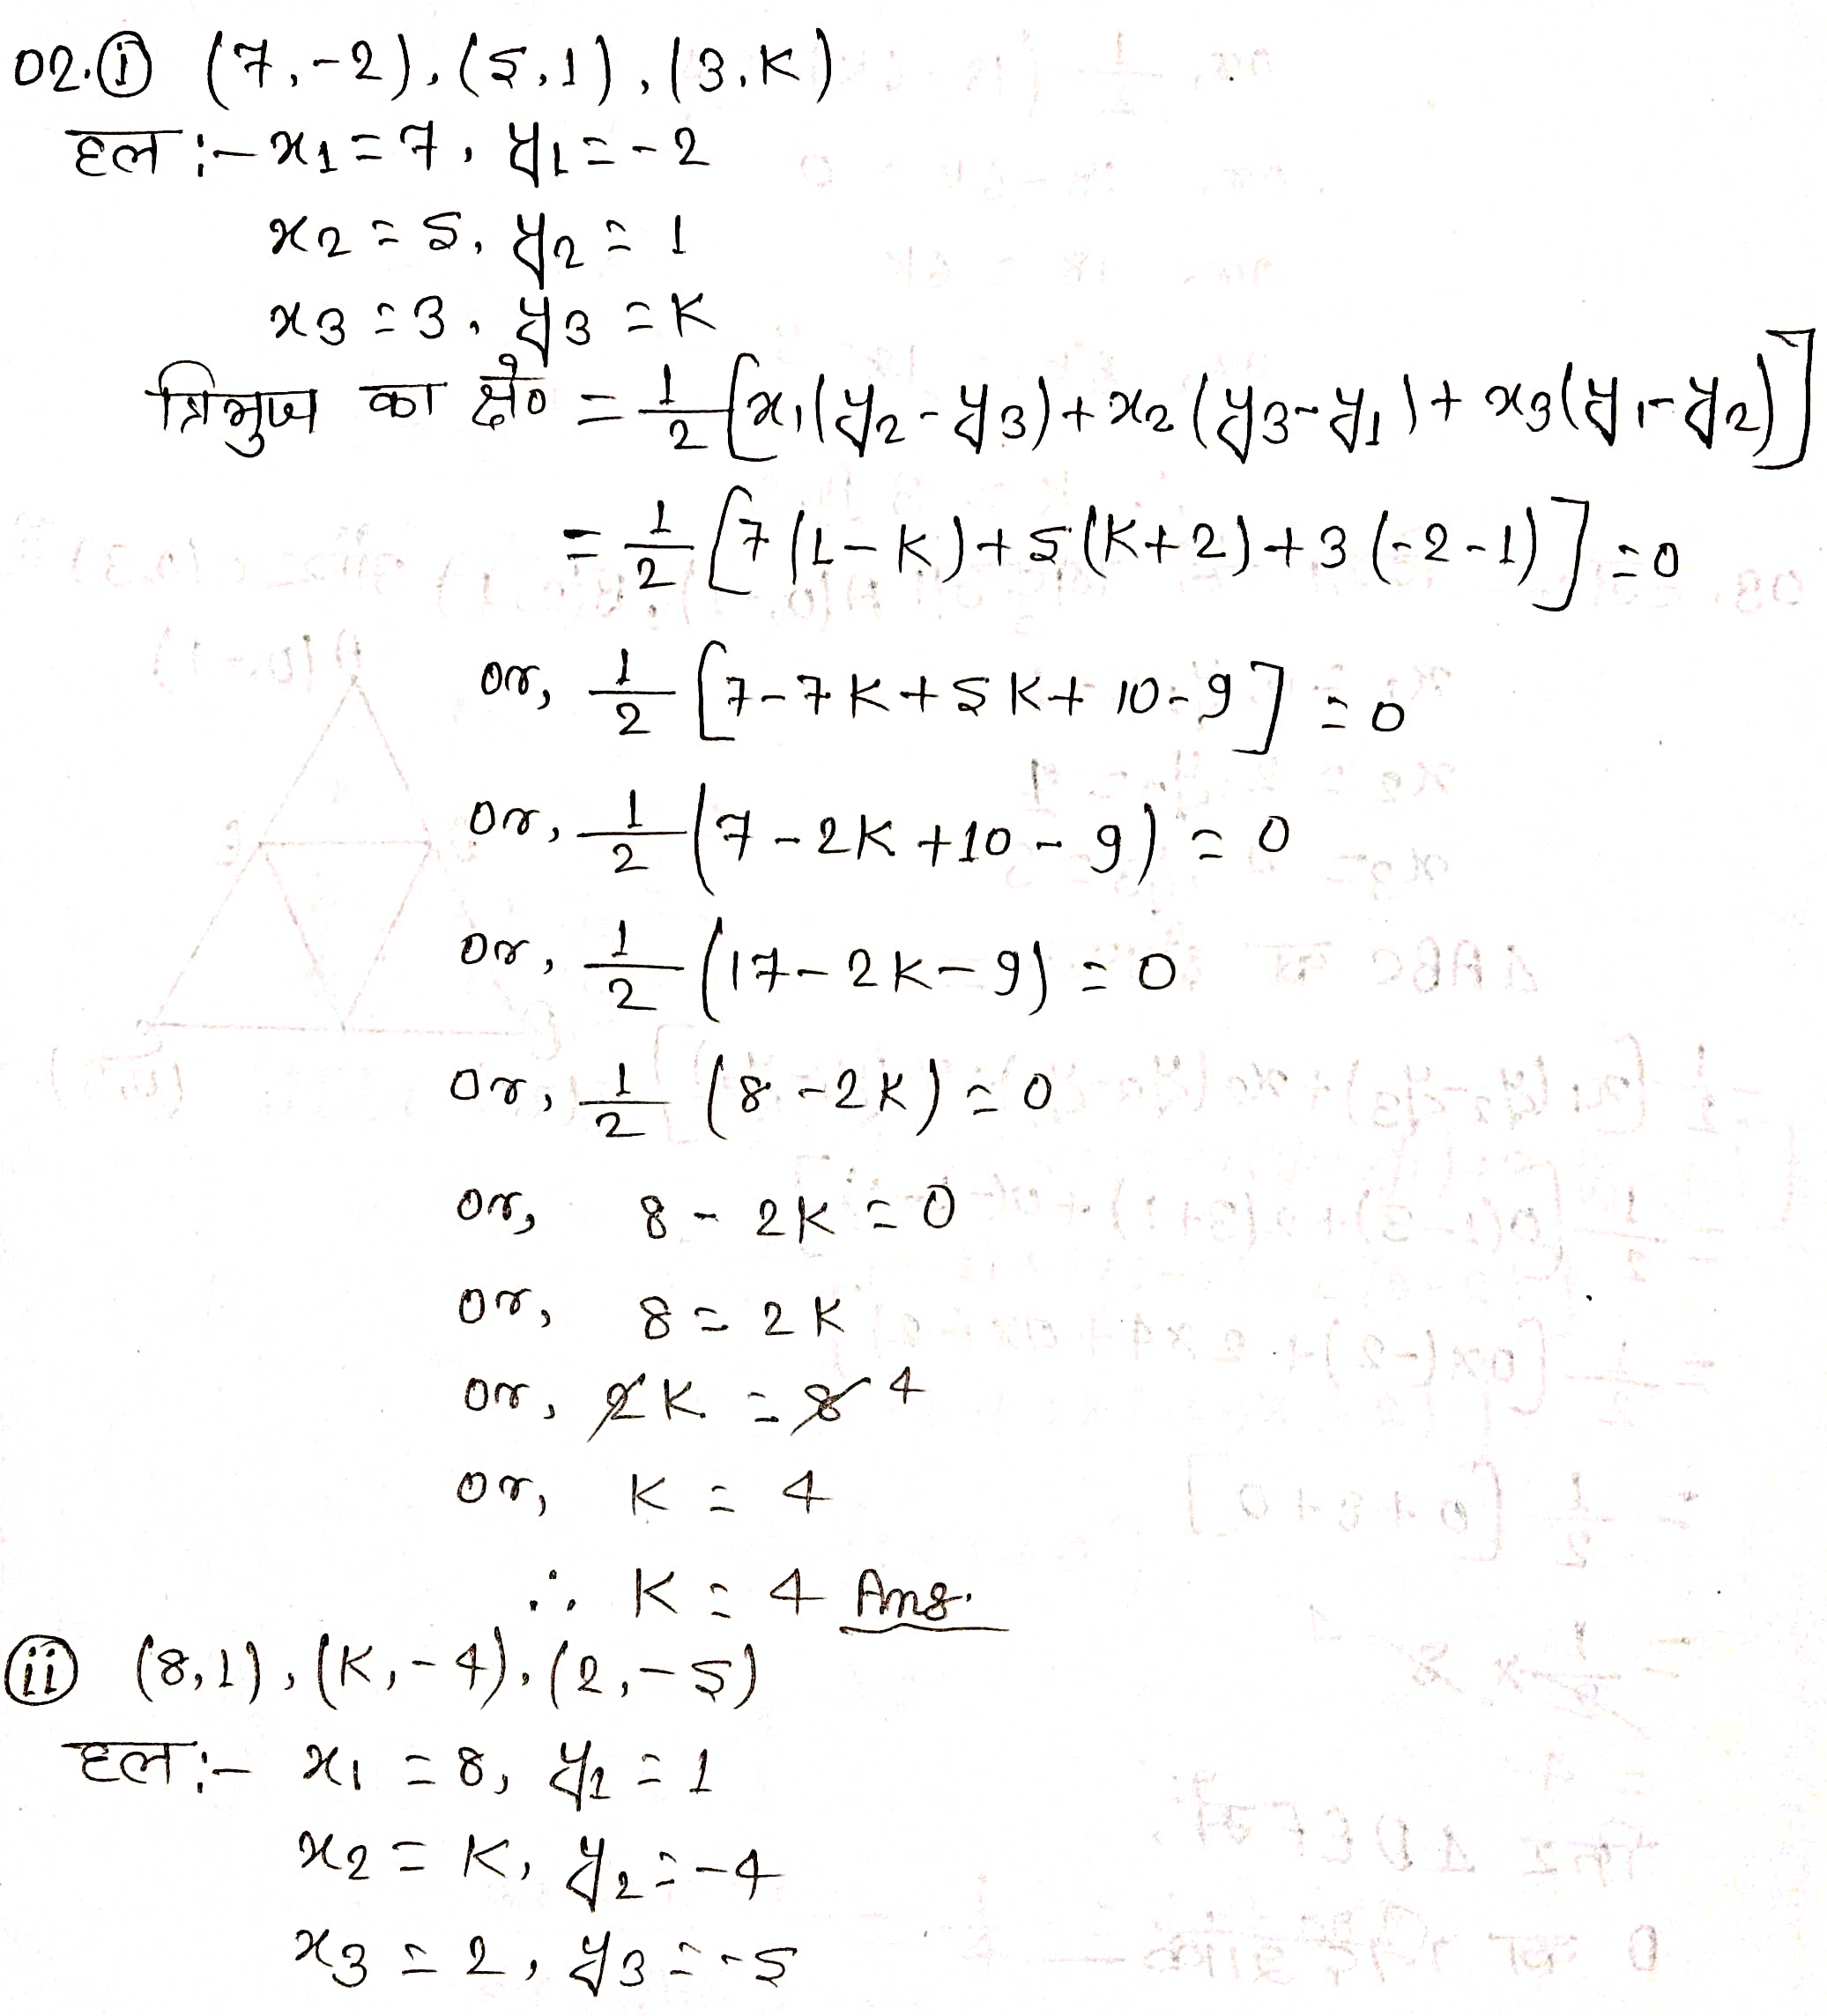 02.(i) (7,-2), (5,1), (3,K)
हल :- x1 = 7, y1 = -2
x2 = 5, y2 = 1
x3 = 3, y3 = K
त्रिभुज का क्षे० = 1/2 [x1(y2-y3)+x2(y3-y1)+x3(y1-y2)]
= 1/2 [7(1-K)+5(K+2)+3(-2-1)] = 0
or, 1/2 [7-7K+5K+10-9] = 0
or, 1/2 (7-2K+10-9) = 0
or, 1/2 (17-2K-9) = 0
or, 1/2 (8-2K) = 0
or, 8-2K = 0
or, 8 = 2K
or, 2K = 8 4
or, K = 4
∴ K = 4 Ans.
(ii) (8,1), (K,-4), (2,-5)
हल :- x1 = 8, y1 = 1
x2 = K, y2 = -4
x3 = 2, y3 = -5